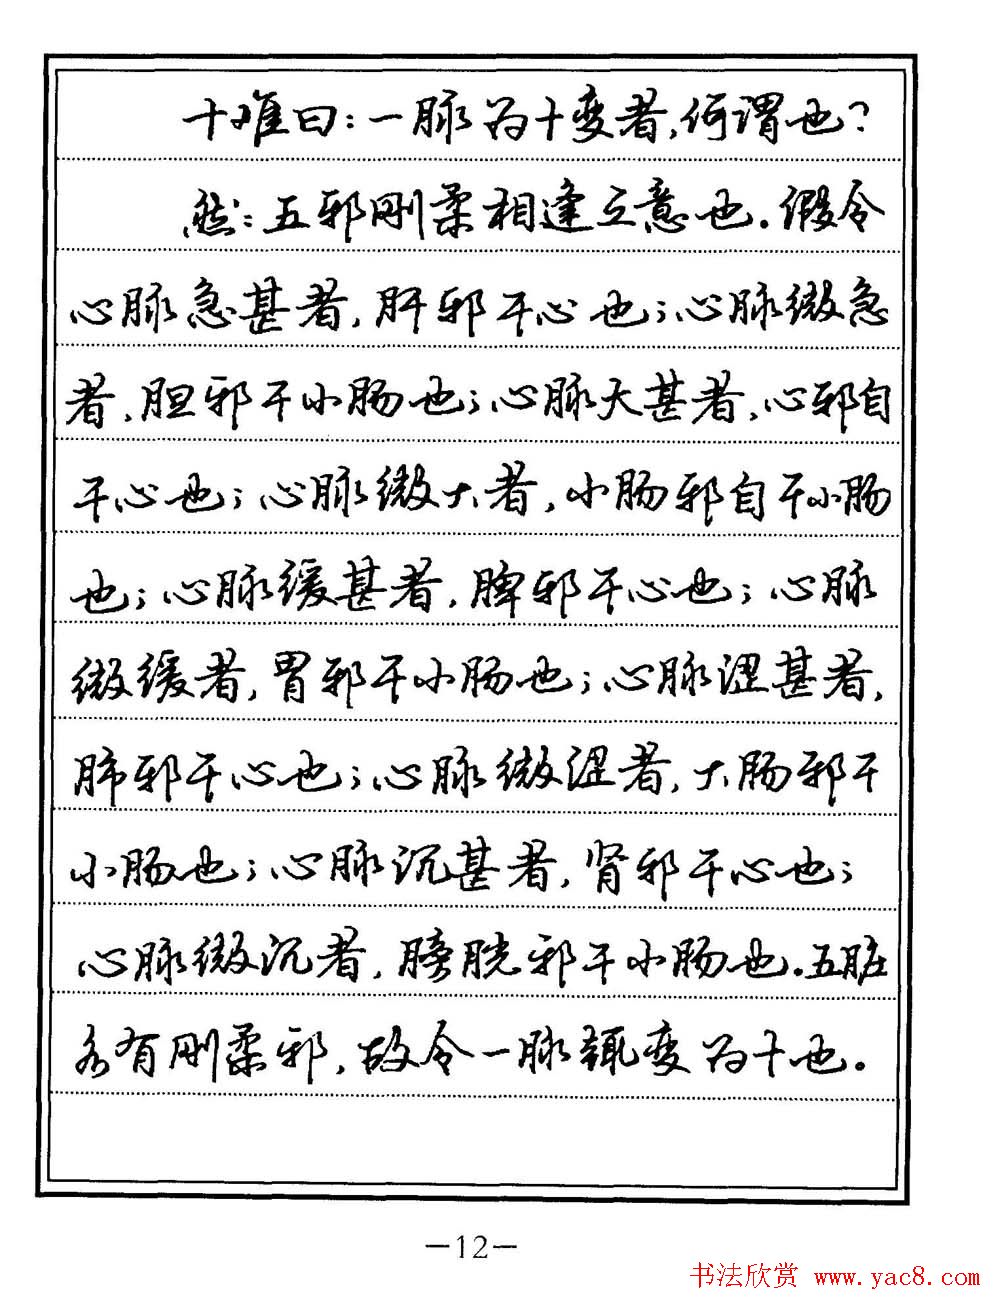 十难曰：一脉为十变者，何谓也？
然：五邪刚柔相逢之意也。假令
心脉急甚者，肝邪干心也；心脉微急
者，胆邪干小肠也；心脉大甚者，心邪自
干心也；心脉微大者，小肠邪自干小肠
也；心脉缓甚者，脾邪干心也；心脉
微缓者，胃邪干小肠也；心脉涩甚者，
肺邪干心也；心脉微涩者，大肠邪干
小肠也；心脉沉甚者，肾邪干心也；
心脉微沉者，膀胱邪干小肠也。五脏
各有刚柔邪，故令一脉辄变为十也。
—12—
书法欣赏 www.yac8.com